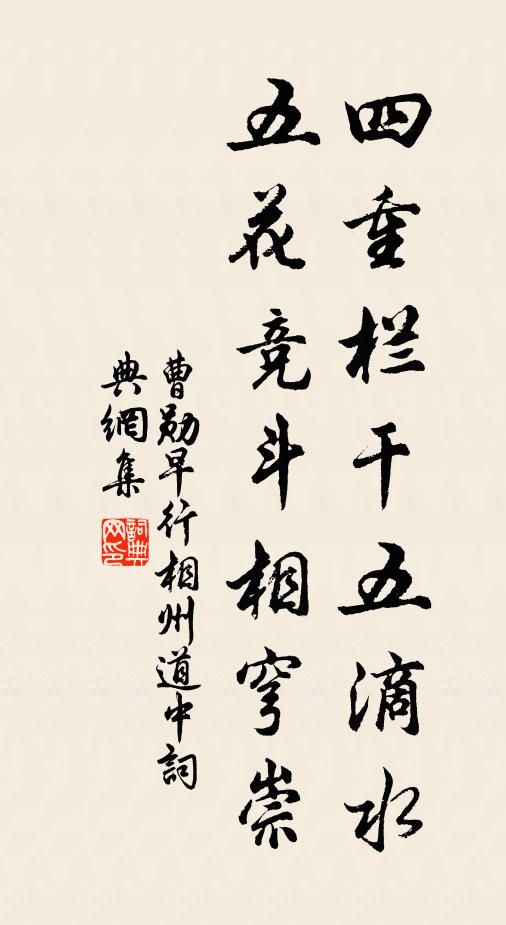 四重栏干五滴水
五花竞斗相穹崇
曹勋早行相州道中詞
典網集
詞典网印